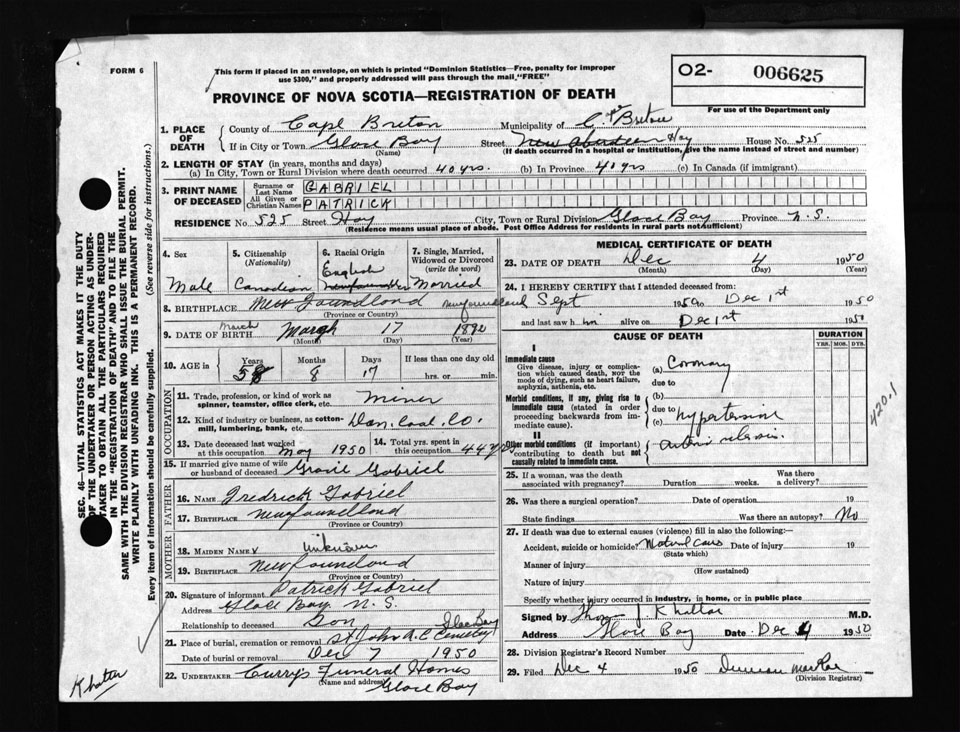 FORM 6
This form if placed in an envelope, on which is printed "Dominion Statistics—Free, penalty for improper
use $300," and properly addressed will pass through the mail, "FREE"
O2- 006625
For use of the Department only
PROVINCE OF NOVA SCOTIA—REGISTRATION OF DEATH
1. PLACE OF DEATH
County of Cape Breton Municipality of C. Breton
If in City or Town Glace Bay Street Hay House No. 525
(Name) (If death occurred in a hospital or institution, give the name instead of street and number)
2. LENGTH OF STAY (in years, months and days)
(a) In City, Town or Rural Division where death occurred 40 yrs. (b) In Province 40 yrs (c) In Canada (if immigrant)
3. PRINT NAME OF DECEASED
Surname or Last Name GABRIEL
All Given or Christian Names PATRICK
RESIDENCE No. 525 Street Hay City, Town or Rural Division Glace Bay Province N.S.
(Residence means usual place of abode. Post Office Address for residents in rural parts not sufficient)
4. Sex Male
5. Citizenship (Nationality) Canadian
6. Racial Origin English
7. Single, Married, Widowed or Divorced (write the word) Married
8. BIRTHPLACE New Foundland Newfoundland
(Province or Country)
9. DATE OF BIRTH March March 17 1892
(Month) (Day) (Year)
10. AGE in Years 58 Months 8 Days 17 If less than one day old
hrs. or min.
OCCUPATION
11. Trade, profession, or kind of work as spinner, teamster, office clerk, etc. miner
12. Kind of industry or business, as cotton-mill, lumbering, bank, etc. Dom. Coal. Co.
13. Date deceased last worked at this occupation May 1950
14. Total yrs. spent in this occupation 44 yrs
15. If married give name of wife or husband of deceased Gracie Gabriel
FATHER
16. NAME Fredrick Gabriel
17. BIRTHPLACE Newfoundland
(Province or Country)
MOTHER
18. MAIDEN NAME Unknown
19. BIRTHPLACE Newfoundland
(Province or Country)
20. Signature of informant Patrick Gabriel
Address Glace Bay. N.S.
Relationship to deceased Son
21. Place of burial, cremation or removal St John A.C Cemetery Glace Bay
Date of burial or removal Dec 7 1950
22. UNDERTAKER Curry's Funeral Homes
(Name and address)
Glace Bay
MEDICAL CERTIFICATE OF DEATH
23. DATE OF DEATH Dec 4 1950
(Month) (Day) (Year)
24. I HEREBY CERTIFY that I attended deceased from:
Sept 1950 to Dec 1st 1950
and last saw h im alive on Dec 1st 1950
CAUSE OF DEATH DURATION
YRS. MOS. DYS.
I
Immediate cause
Give disease, injury or complication which caused death, NOT the mode of dying, such as heart failure, asphyxia, asthenia, etc.
(a) Coronary
due to
Morbid conditions, if any, giving rise to immediate cause (stated in order proceeding backwards from immediate cause).
(b)
due to
(c)
II
Other morbid conditions (if important) contributing to death but not causally related to immediate cause.
420.1
25. If a woman, was the death associated with pregnancy? Duration weeks. Was there a delivery?
26. Was there a surgical operation? Date of operation 19
State findings Was there an autopsy? No
27. If death was due to external causes (violence) fill in also the following:
Accident, suicide or homicide? Natural Caus Date of injury 19
(State which)
Manner of injury
(How sustained)
Nature of injury
Specify whether injury occurred in industry, in home, or in public place
Signed by Thos J Khattar M.D.
Address Glace Bay Date Dec 4 1950
28. Division Registrar's Record Number
29. Filed Dec 4 1950 Duncan MacRae
(Division Registrar)
SEC. 46—VITAL STATISTICS ACT MAKES IT THE DUTY
OF THE UNDERTAKER OR PERSON ACTING AS UNDER-
TAKER TO OBTAIN ALL THE PARTICULARS REQUIRED
IN THE "REGISTRATION OF DEATH" AND TO FILE THE
SAME WITH THE DIVISION REGISTRAR WHO SHALL ISSUE THE BURIAL PERMIT.
WRITE PLAINLY WITH UNFADING INK. THIS IS A PERMANENT RECORD.
Every item of information should be carefully supplied. (See reverse side for instructions.)
Khattar